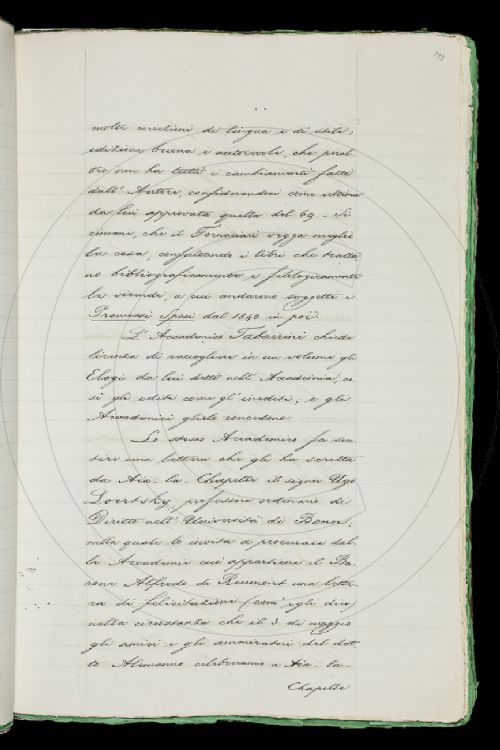 molte correzioni di lingua e di stile;
edizione buona e autorevole, che peral-
tro non ha tutti i cambiamenti fatti
dall' Autore, considerandosi come ultima
da lui approvata quella del 69. - Si
rimane, che il Fornaciari vegga meglio
la cosa, consultando i libri che tratta-
no bibliograficamente e filologicamente
le vicende, a cui andarono soggetti i
Promessi Sposi dal 1840 in poi.
L' Accademico Tabarrini chiede
licenza di raccogliere in un volume gli
Elogi da lui detti nell' Accademia, co-
sì gli editi come gl' inediti; e gli
Accademici gliele concedono.
Lo stesso Accademico fa sen-
tire una lettera che gli ha scritta
da Aix-la-Chapelle il signor Ugo
Loersky, professore ordinario di
Diritto nell' Università di Bonn;
nella quale lo invita a procurare dal-
la Accademia cui appartiene il Ba-
rone Alfredo di Reumont una lette-
ra di felicitazione (com' egli dice)
nella circostanza che il 3 di maggio
gli amici e gli ammiratori del dot-
to Alemanno celebreranno a Aix-la-
Chapelle